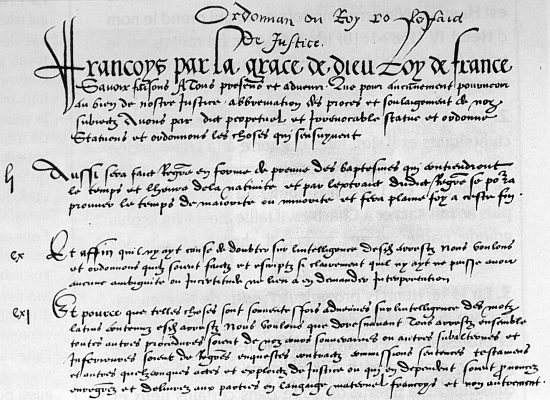 Ordonnan du Roy
De Justice.
Francoys par la grace de dieu Roy de france
Savoir faisons A Tous presens et advenir Que pour aucunement pourveoir
au bien de nostre Justice abbreviation des proces et soulagement de noz
subiectz Avons par edict perpetuel et Irrevocable statue et ordonne
Statuons et ordonnons les choses qui sensuyvent
li Aussi sera faict Regre en forme de preuve des baptesmes qui contiendront
le temps et lheure de la nativite et par lextraict dudict Regre se pora
prouver le temps de maiorite ou minorite et fera plaine foy a ceste fin
cx Et affin quil ny ayt cause de doubter sur lintelligence desd arrestz Nous voulons
et ordonnons quilz soient faictz et escriptz si clairement quil ny ayt ne puisse avoir
aucune ambiguite ou incertitude ne lieu a en demander Interpretation
cxi Et pource que telles choses sont souventesfois advenues sur lintelligence des motz
latins contenuz esd arrestz Nous voulons que doresnavant Tous arrestz ensemble
toutes autres procedures soient de noz cours souveraines ou autres subalternes et
Inferieures soient de Regres enquestes contractz commissions sentences testamens
et autres quelzconques actes et exploictz de Justice ou qui en dependent soient prononcez
enregrez et delivrez aux parties en langage maternel francoys et non autrement